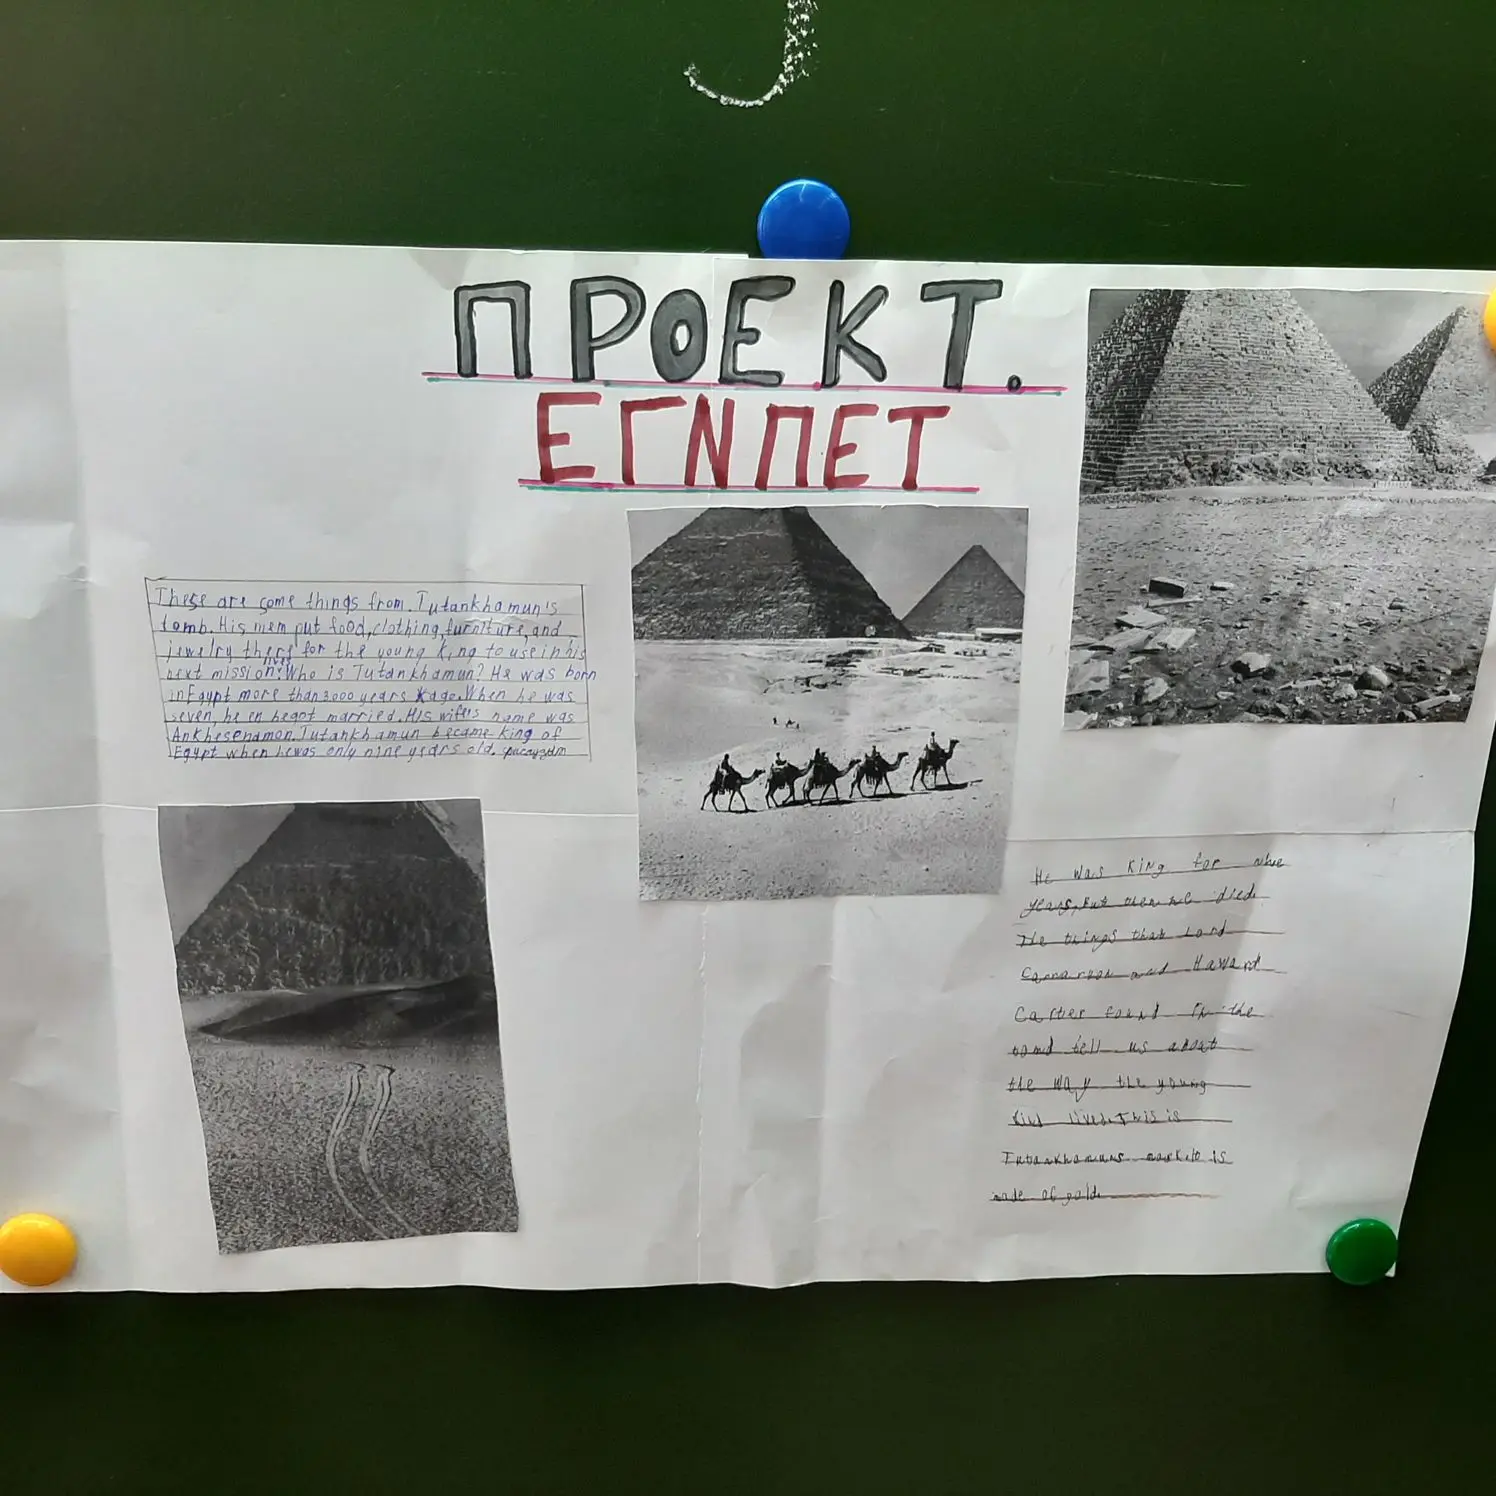 ПРОЕКТ.
ЕГИПЕТ
These are some things from. Tutankhamun's
tomb. His mem put food, clothing, furniture, and
jewelry there for the young King to use in his
next mission: Who is Tutankhamun? He was born
in Egypt more than 3000 years age. When he was
seven, he en hegot married. His wifers name was
Ankhesenamon. Tutankhamun became king of
Egypt when hewas only nine years old.
He was King for
years, but then he died.
The things that Lord
Carnarvon and Haward
Carter found in the
tomd tell us about
the way the young
lived. This is
Tutankhamuns mask. It is
made of gold.